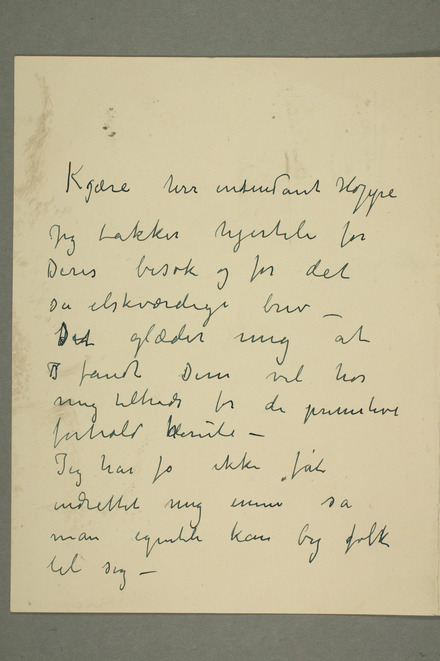 Kjære herr intendant Hoppe
Jeg takker hjertelig for
Deres besøk og for det
så elskværdige brev –
Det glæder mig at
I fandt Dem vel hos
mig tiltrods for de primitive
forhold herute –
Jeg har jo ikke fåt
indrettet mig ennu så
man egentlig kan by folk
til sig –